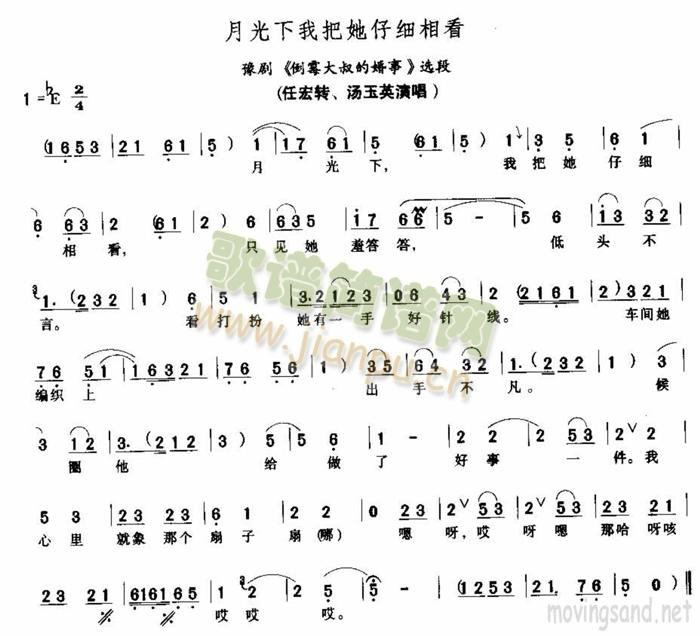 月光下我把她仔细相看
豫剧《倒霉大叔的婚事》选段
(任宏转、汤玉英演唱)
1=♭E 2/4
(1653 | 21 61 | 5) 1 | 1 17 61 | 5 (61 | 5) 1 | 3 5 | 6 1 |
月 光 下, 我 把 她 仔 细
6 63 | 2 (61 | 2) 6 | 635 | 17 66 | 5 - | 5 6 | 13 32 |
相 看, 只 见 她 羞答答, 低 头 不
1. (232 | 1) 6 | 5 1 | 3.2123 | 06 43 | 2 (2161 | 2) 323 |
言。 看 打 扮 她有一手 好 针 线。 车间她
76 51 | 16321 | 76 56 | 1) 35 | 64 32 | 1. (232 | 1) 3 |
编织 上 出 手 不 凡。 候
3 12 | 3. (212 | 3) 3 | 5 5 6 | 1 - | 2 2 | 2 53 | 2 2 |
圈 他 给 做 了 好 事 一 件。我
5 3 | 23 23 | 6 1 | 2 2 | 0 23 | 2 53 | 2 53 | 23 23 |
心 里 就象 那个 扇 子 扇 (哪) 嗯 呀,哎 呀 嗯 那哈 呀咳
23 21 | 616165 | 1 2 | 2 5 | 5 - | (1253 | 21 76 | 5 0) ‖
哎 哎 哎。
歌谱简谱网
www.jianpu.cn
movingsand.net